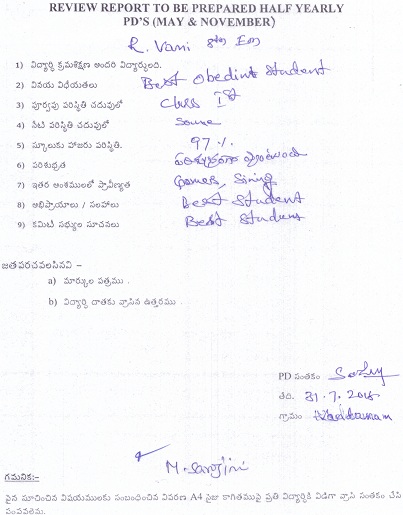 REVIEW REPORT TO BE PREPARED HALF YEARLY
PD'S (MAY & NOVEMBER)
R. Vani 8th Em
1) విద్యార్థి క్రమశిక్షణ అందరి విద్యార్థులది.
2) వినయ విధేయతలు Best obedint student
3) పూర్వపు పరిస్థితి చదువులో Class Ist
4) నేటి పరిస్థితి చదువులో Same
5) స్కూలుకు హాజరు పరిస్థితి. 97 %
6) పరిశుభ్రత పరిశుభ్రంగా వుంటుంది
7) ఇతర అంశములలో ప్రావీణ్యత Games, Sining
8) అభిప్రాయాలు / సలహాలు Best Student
9) కమిటి సభ్యుల సూచనలు Best Student
జతపరచవలసినవి -
a) మార్కుల పత్రము .
b) విద్యార్థి దాతకు వ్రాసిన ఉత్తరము .
PD సంతకం
తేది. 31.7.2018
గ్రామం
M. Sarojini
గమనిక:-
పైన సూచించిన విషయములకు సంబంధించిన వివరణ A4 సైజు కాగితముపై ప్రతి విద్యార్థికి విడిగా వ్రాసి సంతకం చేసి
పంపవలెను.